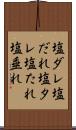 塩ダレ塩
だれ塩タ
レ塩たれ
塩垂れ